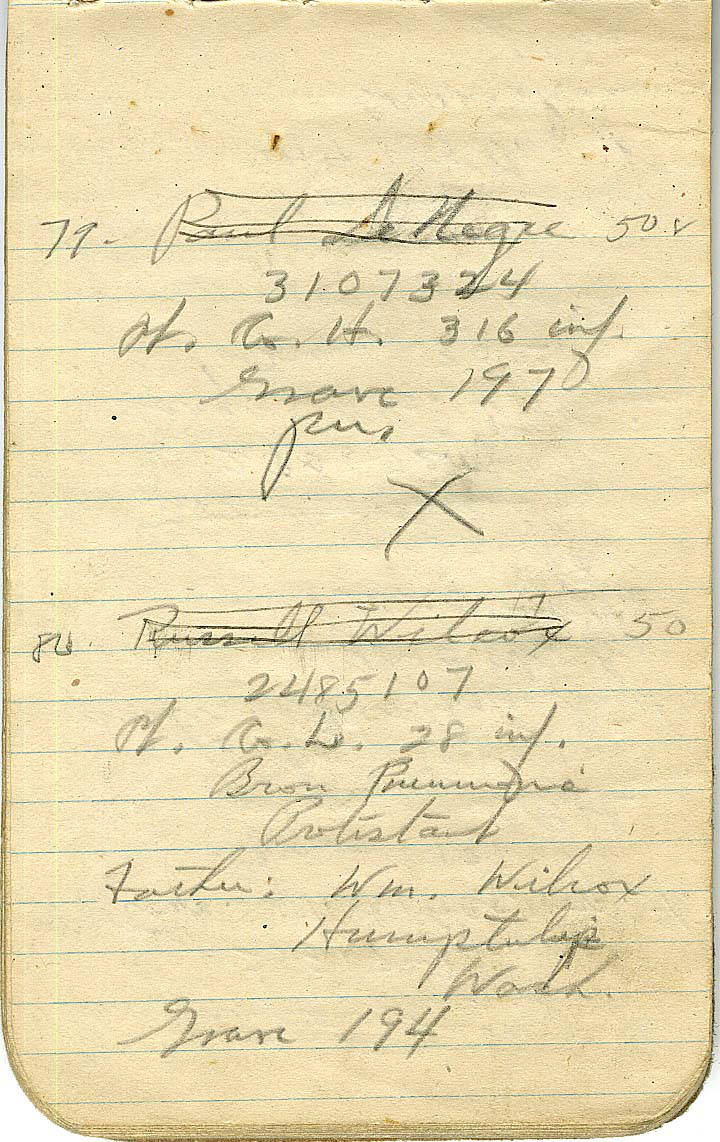 79. Paul De Negre 50
3107324
Pt. Co. H. 316 inf.
Grave 197
pus
X
80. Russell Wilcox 50
2485107
Pt. Co. L. 28 inf.
Bron Pneumonia
Protistant
Father: Wm. Wilcox
Humptulips
Wash.
Grave 194